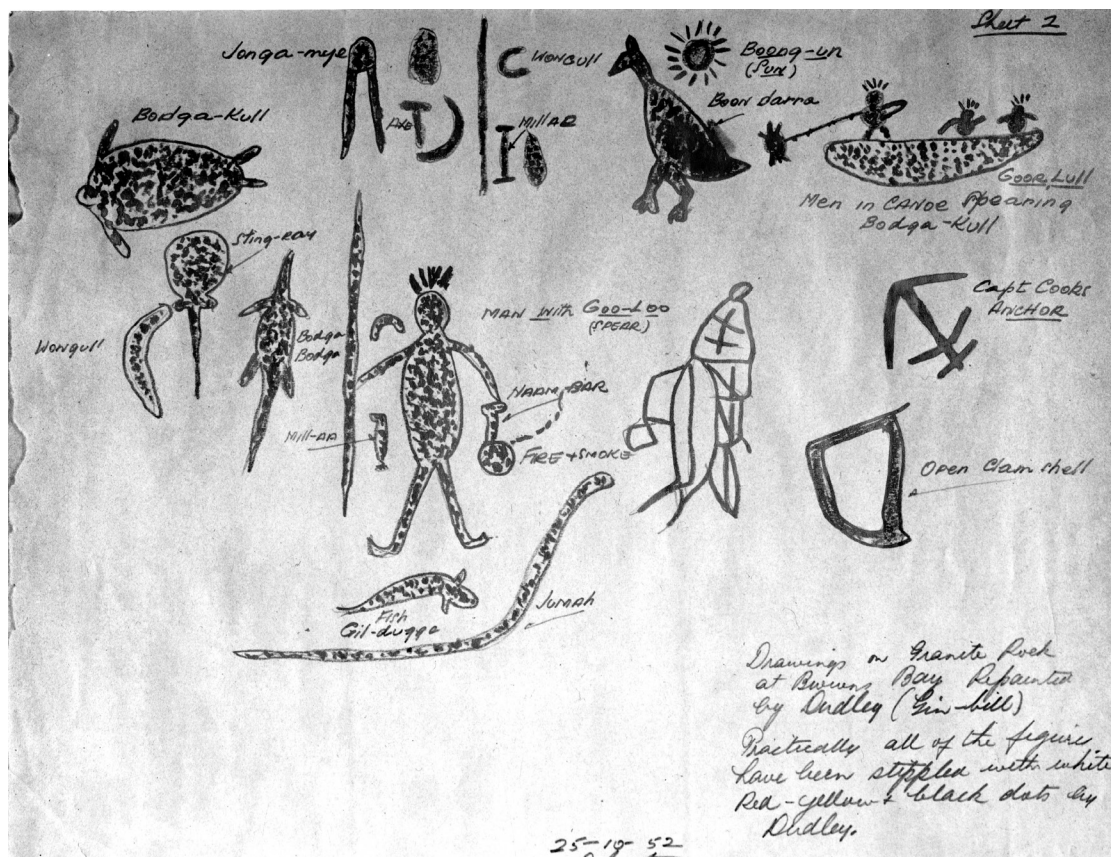 Sheet 2
Jonga-mye
Axe
Wongull
Millar
Boong-un
(Sun)
Boon darra
Bodga-Kull
Goor Lull
Men in Canoe Spearing
Bodga-Kull
Sting-ray
Wongull
Bodga
Bodga
Man with Goo-Loo
(Spear)
Capt Cooks
Anchor
Naam-Bar
Mill-aa
Fire + Smoke
Open Clam shell
Fish
Gil-dugga
Jumah
Drawings on Granite Rock
at Bay Repainted
by Dudley (Gin-bill)
Practically all of the figures
have been stippled with white
Red-yellow + black dots by
Dudley.
25-10-52